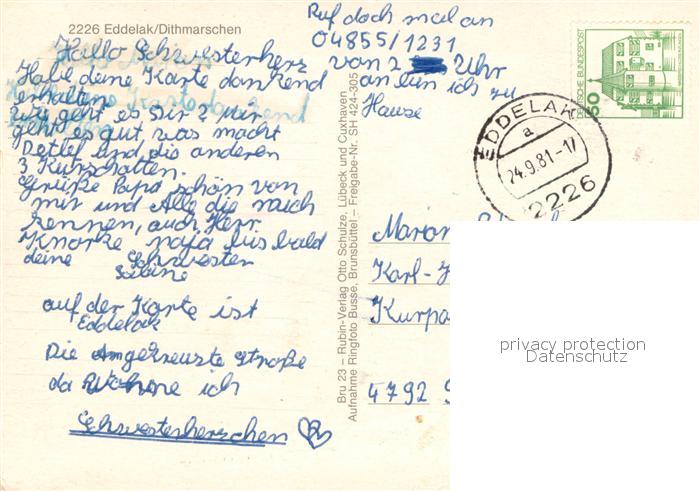 2226 Eddelak/Dithmarschen
Hallo Schwesterherz
Habe deine Karte dankend
erhalten
wie geht es Dir? Mir
geht es gut was macht
Detlef und die anderen
3 Kurschatten.
Grüße Papa schön von
mir und Alle die mich
kennen, auch Herr
Knorke naja bis bald
deine Schwester
Sabine
auf der Karte ist
Eddelak
Die Angekreuzte Straße
da Wohne ich
Schwesterherzchen
Ruf doch mal an
04855/1231
von 2 Uhr
an bin ich zu
Hause
Bru 23 – Rubin-Verlag Otto Schulze, Lübeck und Cuxhaven
Aufnahme Ringfoto Busse, Brunsbüttel – Freigabe-Nr. SH 424-305
DEUTSCHE BUNDESPOST
50
EDDELAK
a
24.9.81-17
2226
Marion
Karl-
Kurpa
4792
privacy protection
Datenschutz